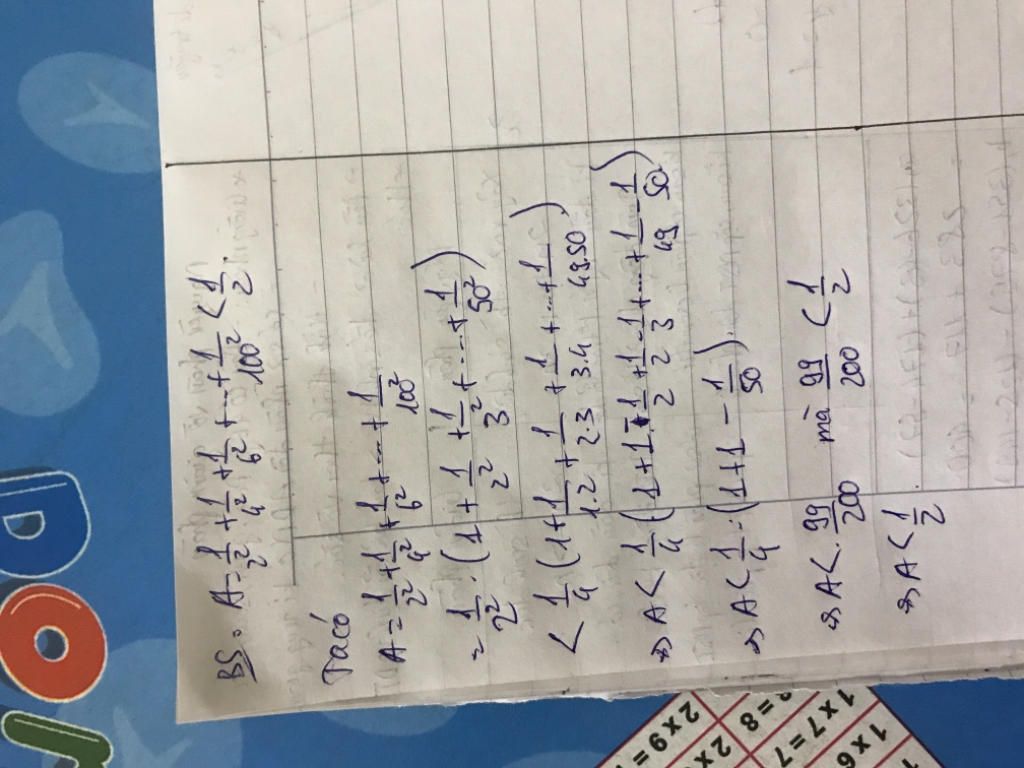 B5: A = 1/2² + 1/4² + 1/6² + ... + 1/100² < 1/2.
Ta có
A = 1/2² + 1/4² + 1/6² + ... + 1/100²
= 1/2² . (1 + 1/2² + 1/3² + ... + 1/50²)
< 1/4 (1 + 1/1.2 + 1/2.3 + 1/3.4 + ... + 1/49.50)
⇒ A < 1/4 (1 + 1 - 1/2 + 1/2 - 1/3 + ... + 1/49 - 1/50)
⇒ A < 1/4 . (1 + 1 - 1/50).
⇒ A < 99/200 mà 99/200 < 1/2
⇒ A < 1/2.
2 x 9 =
= 8
1 x 7 = 7
1 x 6